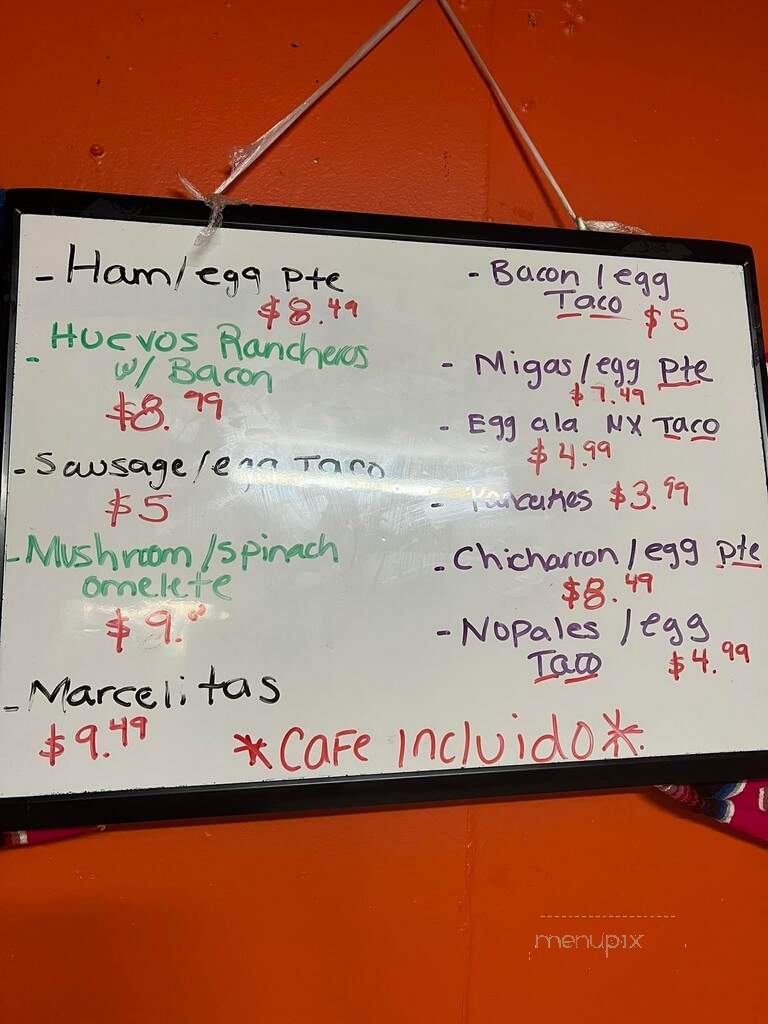 - Ham/egg pte
$8.49
- Huevos Rancheros
w/ Bacon
$8.99
- Sausage/egg Taco
$5
- Mushroom/spinach
omelete
$9.00
- Marcelitas
$9.49
- Bacon/egg
Taco $5
- Migas/egg pte
$7.49
- Egg ala MX Taco
$4.99
- Pancakes $3.99
- Chicharron/egg pte
$8.49
- Nopales/egg
Taco $4.99
*Cafe incluido*
menupix